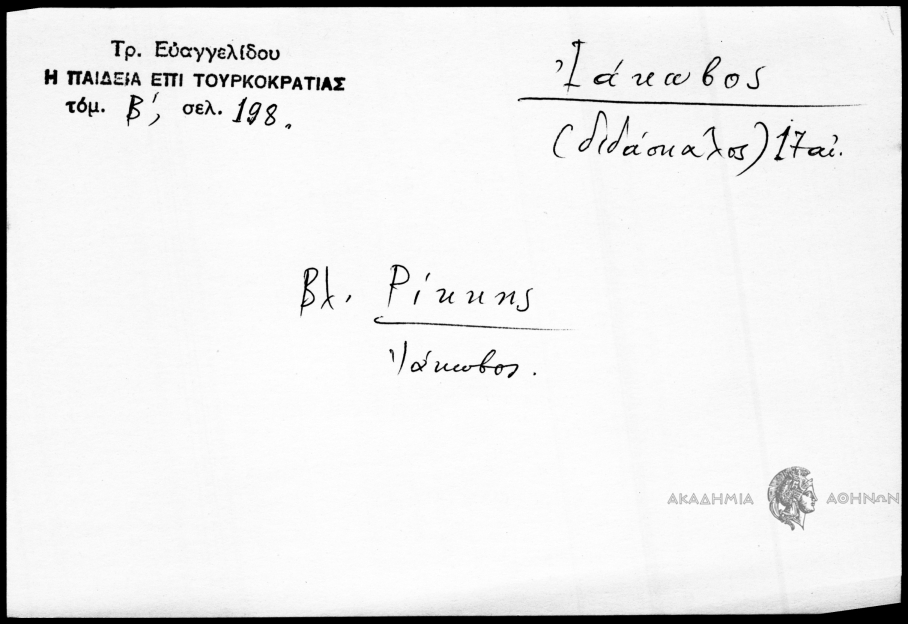 Τρ. Εὐαγγελίδου
Η ΠΑΙΔΕΙΑ ΕΠΙ ΤΟΥΡΚΟΚΡΑΤΙΑΣ
τόμ. Β΄, σελ. 198.
Ἰάκωβος
(διδάσκαλος) 17 αἰ.
Βλ. Ρίκκης
Ἰάκωβος.
ΑΚΑΔΗΜΙΑ ΑΘΗΝΩΝ